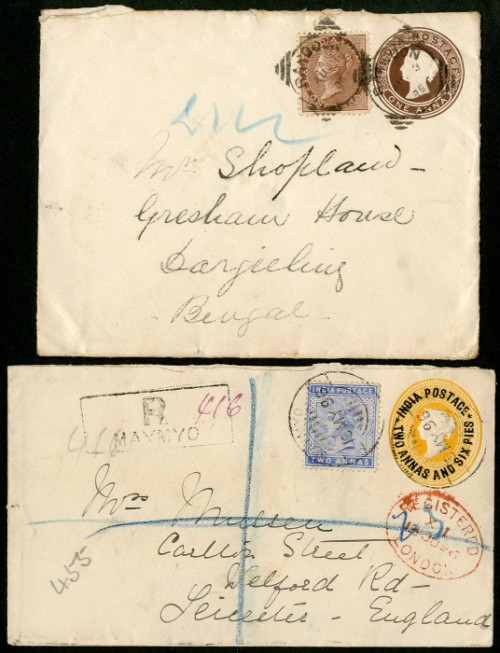 RANGOON
INDIA POSTAGE
ONE ANNA
Mrs Shopland -
Gresham House
Darjeeling
- Bengal -
R
MAYMYO
416
INDIA POSTAGE
TWO ANNAS
INDIA POSTAGE
TWO ANNAS AND SIX PIES
REGISTERED
LONDON
Mrs
Carlton Street
Welford Rd -
Leicester - England
455